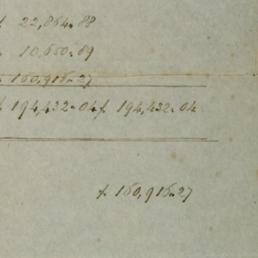 f 22,864.88
" 10,650.89
" 160,916.27
f 194,432.04 f 194,432.04
f 160,916.27